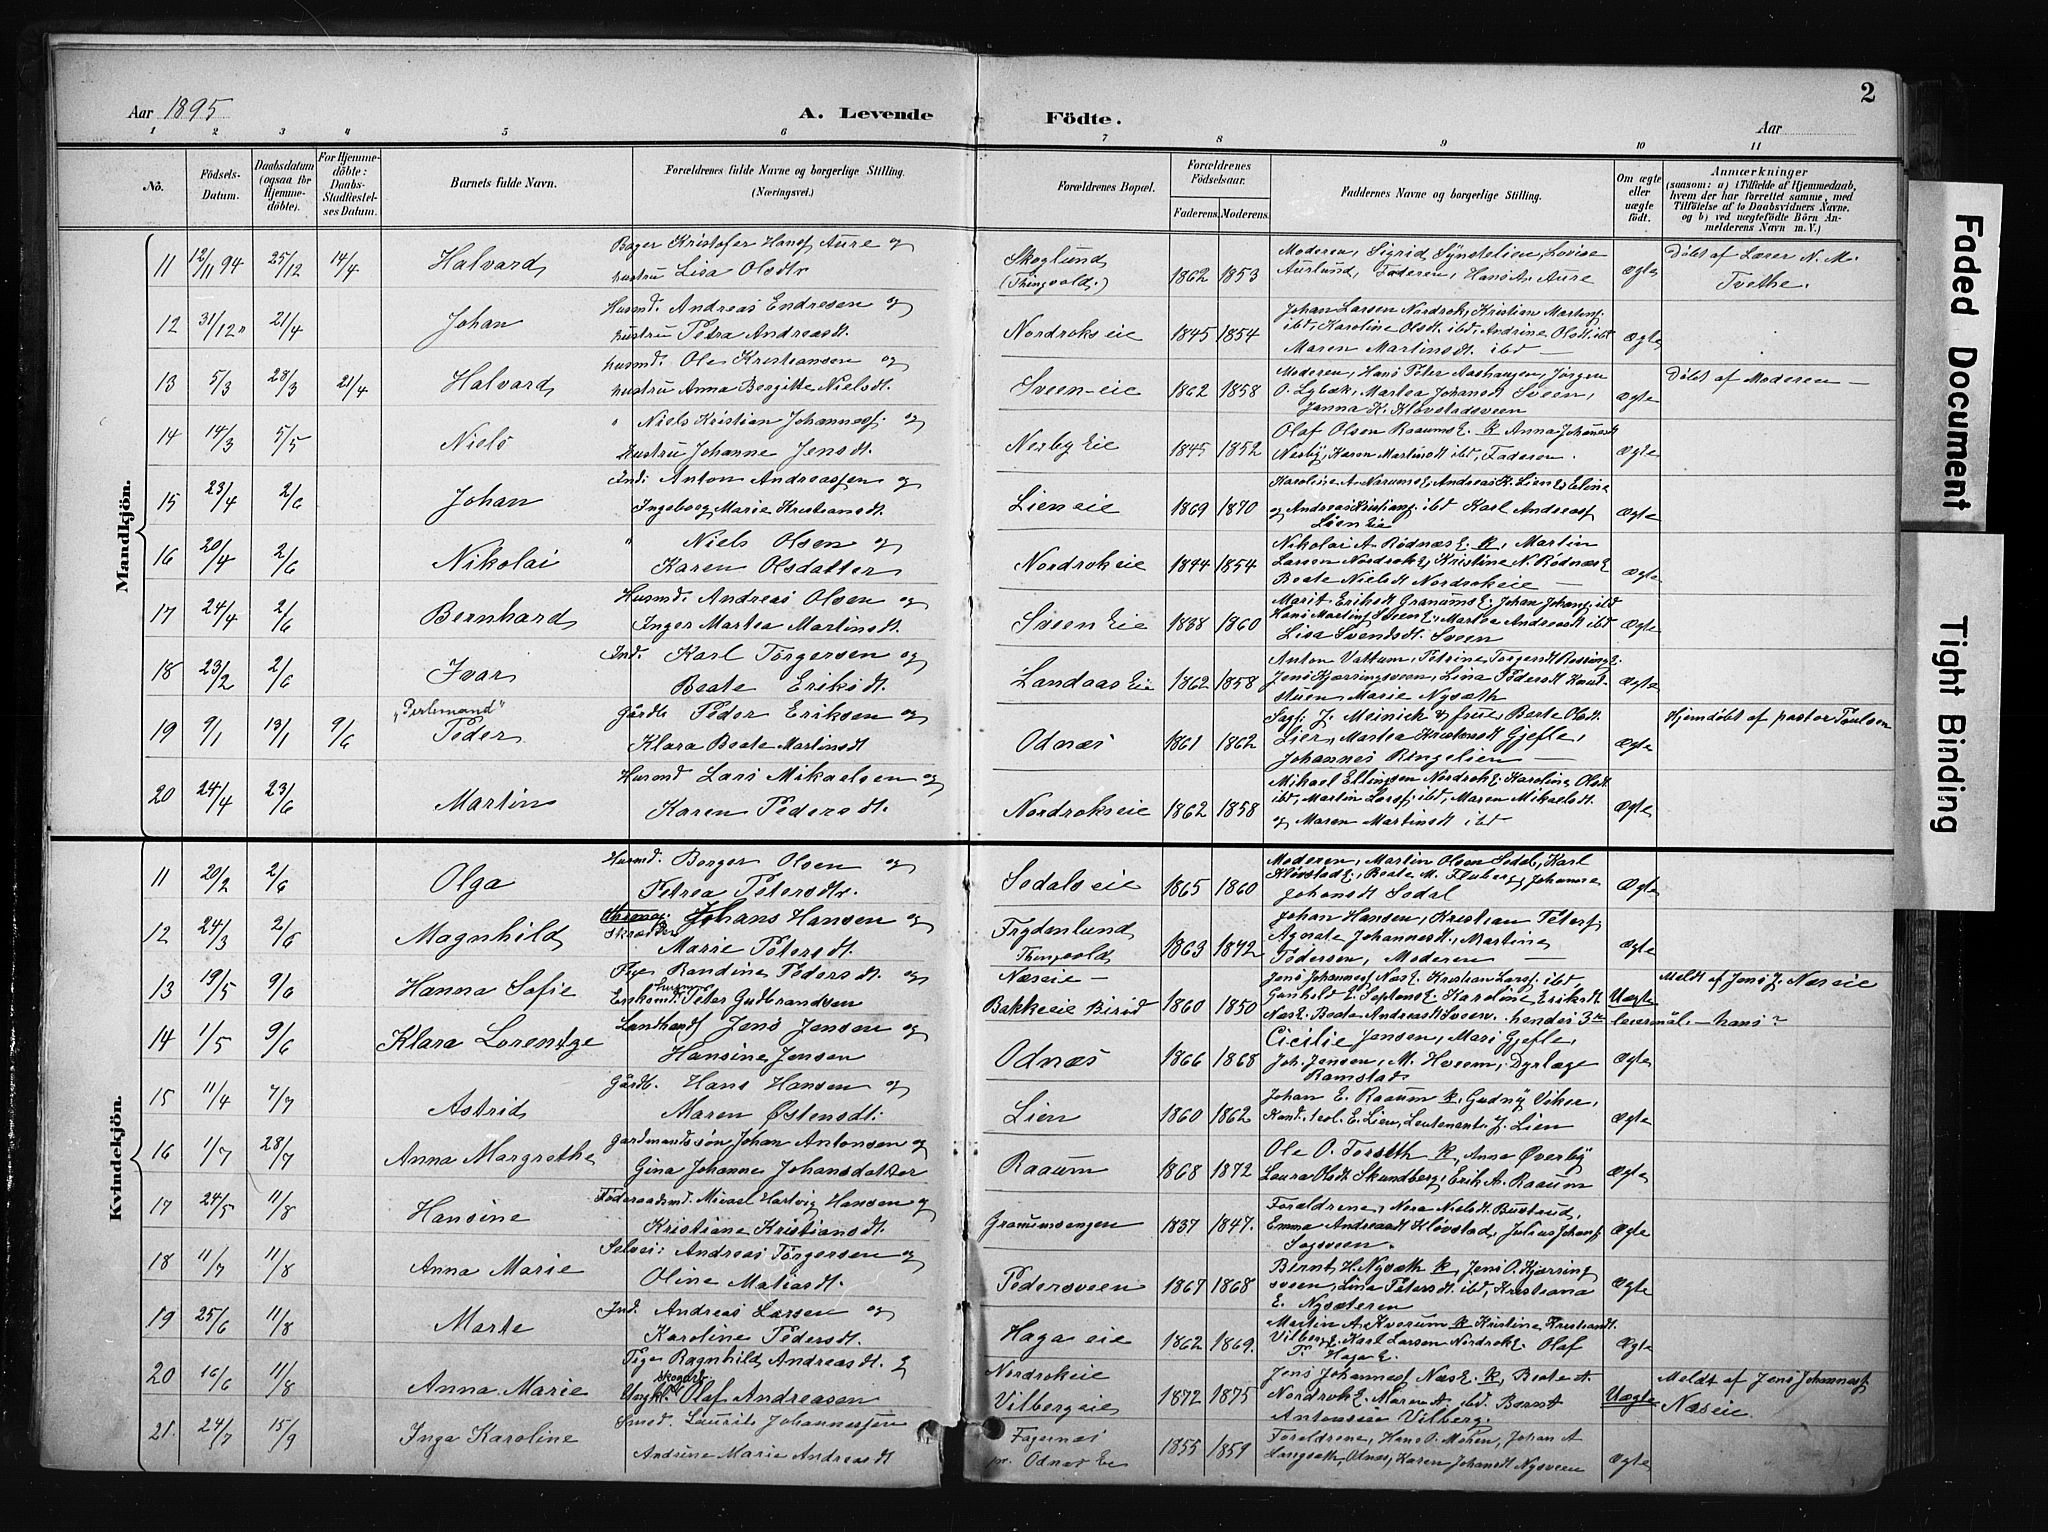 2
Aar 1895
A. Levende Födte.
Aar
1 2 3 4 5 6 7 8 9 10 11
No.
Födsels-Datum.
Daabsdatum (ogsaa for Hjemmedöbte).
For Hjemmedöbte: Daabs-Stadfæstelses Datum.
Barnets fulde Navn.
Forældrenes fulde Navne og borgerlige Stilling. (Næringsvei.)
Forældrenes Bopæl.
Forældrenes Födselsaar.
Faderens. Moderens.
Faddernes Navne og borgerlige Stilling.
Om ægte eller uægte födt.
Anmærkninger
(saasom: a) i Tilfælde af Hjemmedaab, hvem der har forrettet samme, med Tilföielse af to Daabsvidners Navne. og b) ved uægtefödte Börn Anmelderens Navn m. V.)
Mandkjön.
11 12/11 94 25/12 14/4 Halvard
Kristofer Hansf Aure og
hustru Lisa Olsdtr
Skoglund
(Thingvold.)
1862 1853
Moderen, Sigrid Synstelien, Lovise
Aurlund, Faderen, Hans A. Aure
Ægte
Döbt af Lærer N. M.
Tvethe.
12 31/12 21/4 Johan
Husmd. Andreas Endresen og
hustru Petra Andreasdt.
Nordrokseie
1845 1854
Johan Larsen Nordrok, Kristian Martinsf
ibd, Karoline Olsdt. ibd, Andrine Olsdt. ibd
Maren Martinsdt. ibd —
Ægte
13 5/3 28/3 21/4 Halvard
husmd. Ole Kristiansen og
hustru Anna Bergitte Nielsdt.
Sveen-eie
1862 1858
Moderen, Hans Peter Aashaugen, Jörgen
O. Lybæk, Martea Johansdt Sveen,
Janna K. Klövstadsveen
Ægte
Döbt af Moderen —
14 14/3 5/5 Niels
" Niels Kristian Johannesf. og
Hustru Johanne Jensdt.
Nerby Eie
1845 1852
Olaf Olsen RaaumsE. k, Anna Johannesdt
Nerby, Karen Martinsdt ibd, Faderen.
Ægte
15 23/4 2/6 Johan
Ind: Anton Andreassen og
Ingeborg Marie Kristiansdt.
Lieneie
1869 1870
Karoline A. NerumsE, Andreas K. LienE, Eline
og Andreas Kristiansf. ibd Karl Andreasf
Lien Eie
Ægte
16 20/4 2/6 Nikolai
" Niels Olsen og
Karen Olsdatter
Nordrokeie
1844 1854
Nikolai A. RödnæsE. k, Martin
Larsen NordrokE, Kristine N. RödnæsE
Beate Nielsdt Nordrokeie —
Ægte
17 24/4 2/6 Bernhard
Husmd. Andreas Olsen og
Inger Martea Martinsdt.
Sveen Eie
1838 1860
Marit Eriksdt GranumsE. Johan Johansf. ibd
Hans Martinsf SveenE, Martea Andreasdt ibd
Lisa Svendsdt. Sveen
Ægte
18 23/2 2/6 Ivar
Ind. Karl Torgersen og
Beate Eriksdt.
Landaas Eie
1862 1858
Anton Vattum, Petrine Torgersdt
Jens Kjærringsveen, Lina Pedersdt
stuen Marie Nysæth
Ægte
19 9/1 13/1 9/6 "Perlemand"
Peder
Gårdb. Peder Eriksen og
Klara Beate Martinsdt
Odnæs
1861 1862
Sagf. J. Meinich & frue, Berte Olsdt.
Lier, Martea Kristensdt Gjefle,
Johannes Ringelien —
Ægte
Hjemdöbt af pastor Paulsen
20 24/4 23/6 Martin
Husmd Lars Mikaelsen og
Karen Pedersdt.
Nordrokseie
1862 1858
Mikael Ellingsen NordrokE. Karoline Olsdt.
ibd, Martin Larsf. ibd, Maren Mikaelsdt.
og Maren Martinsdt ibd
Ægte
Kvindekjön.
11 20/2 2/6 Olga
Husmd. Borger Olsen og
Petrea Petersdtr.
Sodalseie
1865 1860
Moderen, Martin Olsen Sodal, Karl
KlövstadE, Beate M. Fluberg, Johanne
Johansdt Sodal
Ægte
12 24/3 2/6 Magnhild
Skrædder Johans Hansen og
Marie Petersdt.
Frydenlund
Thingvold
1863 1872
Johan Hansen, Kristian Petersf.
Agnate Johannesdt, Martine
Pedersen, Moderen —
Ægte
13 19/5 9/6 Hanna Sofie
Pige Randine Pedersdt. og
Enkemd. Peter Gudbrandsen
Næseie —
Bakkeeie Birid
1860 1850
Jens Johannesf NæsE. Kristian Larsf. ibd,
Gunhild E. SeptensE. Karoline Eriksdt.
NæsE. Beate Andreasdt Sveen. hendes 3die leiermål. — hans?
Uægte
Meldt af Jens J. Næseie
14 1/5 9/6 Klara Lorentze
Landhandl Jens Jensen og
Hansine Jensen
Odnæs
1866 1868
Cicilie Jensen, Mari Gjefle,
Joh. Jensen, M. Hveem, Dyrlæge
Ramstad
Ægte
15 11/4 7/7 Astrid
Gårdb. Hans Hansen og
Maren Østensdt.
Lien
1860 1862
Johan E. Raaum k, Gudny Viker,
Kand. teol. E. Lien, Leutenent J. Lien
Ægte
16 1/7 28/7 Anna Margrethe
Gardmandssön Johan Antonsen og
Gina Johanne Johansdatter
Raaum
1868 1872
Ole O. Forseth k, Anne Øverby
Laura Olsdt. Skundberg, Erik A. Raaum
Ægte
17 24/5 11/8 Hansine
Föderaadsmd. Mikael Hartvig Hansen og
Kristiane Kristiansdt.
Granumsengen
1837 1847.
Foreldrene, Nera Nielsdt Bustrud,
Emma Andreasdt Klövstad, Julius Johansf
Sagsveen.
Ægte
18 11/7 11/8 Anna Marie
Selvei: Andreas Torgersen og
Oline Matiasdt.
Pedersveen
1867 1868
Bernt H. Nysæth k, Jens O. Kjærring
sveen, Lina Petersdt ibd, Kristiana
E. Nysæteren
Ægte
19 25/6 11/8 Marte
Ind. Andreas Larsen og
Karoline Pedersdt.
Haga eie
1862 1869.
Martin A. Kverum k Kristine Kristiansdt.
VilbergE, Karl Larsen NordrokE. Olaf
P. Haga E.
Ægte
20 16/6 11/8 Anna Marie
Pige Ragnhild Andreasdt. &
Ungk. Olaf Andreasen
Nordrokeie
Vilbergeie
1872 1875
Jens Johannesf NæsE. k, Beate A
NordrokE. Maren A. ibd. Bernt
Antonsen Vilberg.
Uægte
Meldt af Jens Johannesf
Næseie.
21. 24/7 15/9 Inga Karoline
Smed. Laurits Johannessen
Andrine Marie Andreasdt
Fagernæs
pr. Odnæs Eie
1855 1859
Foreldrene, Hans P. Mohen, Johan A
Langsæth, Olnæs, Karen Johansdt Nysveen
Ægte
Faded Document
Tight Binding